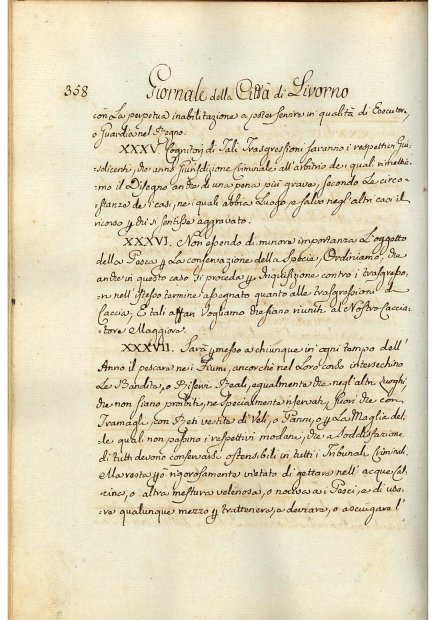 358 Giornale della Città di Livorno
con La perpetua inabilitazione a poter servire in qualità di Esecutor,
o Guardia nel Regno.
XXXV Cognitori di Tali Trasgressioni saranno i respettivi Giu-
sdicenti, che anno Giurisdizione Criminale all'arbitrio dei quali rimettia-
mo il Disegno anche di una pena più grave, secondo Le circo-
stanze de' casi, nei quali abbia Luogo, e salvo negl'altri casi il
ricorso p chi si sentisse aggravato.
XXXVI. Non essendo di minore importanza L'oggetto
della Pesca p La conservazione della Spezie, Ordiniamo, che
anche in questo caso si proceda p Inquisizione contro i trasgresso-
ri nell'istesso termine assegnato quanto alle trasgressioni di
Caccia, E tali affari Vogliamo che siano riuniti al Nostro Caccia-
tore Maggiore.
XXXVII. Sarà pmesso a chiunque in ogni tempo dell'
Anno il pescare nei Fiumi, ancorchè nel Loro condo intersechino
Le Bandite, o Riserve Reali, equalmente che negl'altri Luoghi,
che non siano proibiti, ne specialmente riservati, fuori che con
Tramagli, con Reti vestite di Veli, o Panni, o p La Maglia del-
le quali non passino i respettivi modani, che a soddisfazione
di tutti devono conservarsi ostensibili in tutti i Tribunali Criminali.
Ma resta p ò rigorosamente vietato di gettare nell'acque Cal-
cina, o altra mestura velenosa, o nociva ai Pesci, e di usa-
re qualunque mezzo p trattenere, a deviare, o asciugare l'